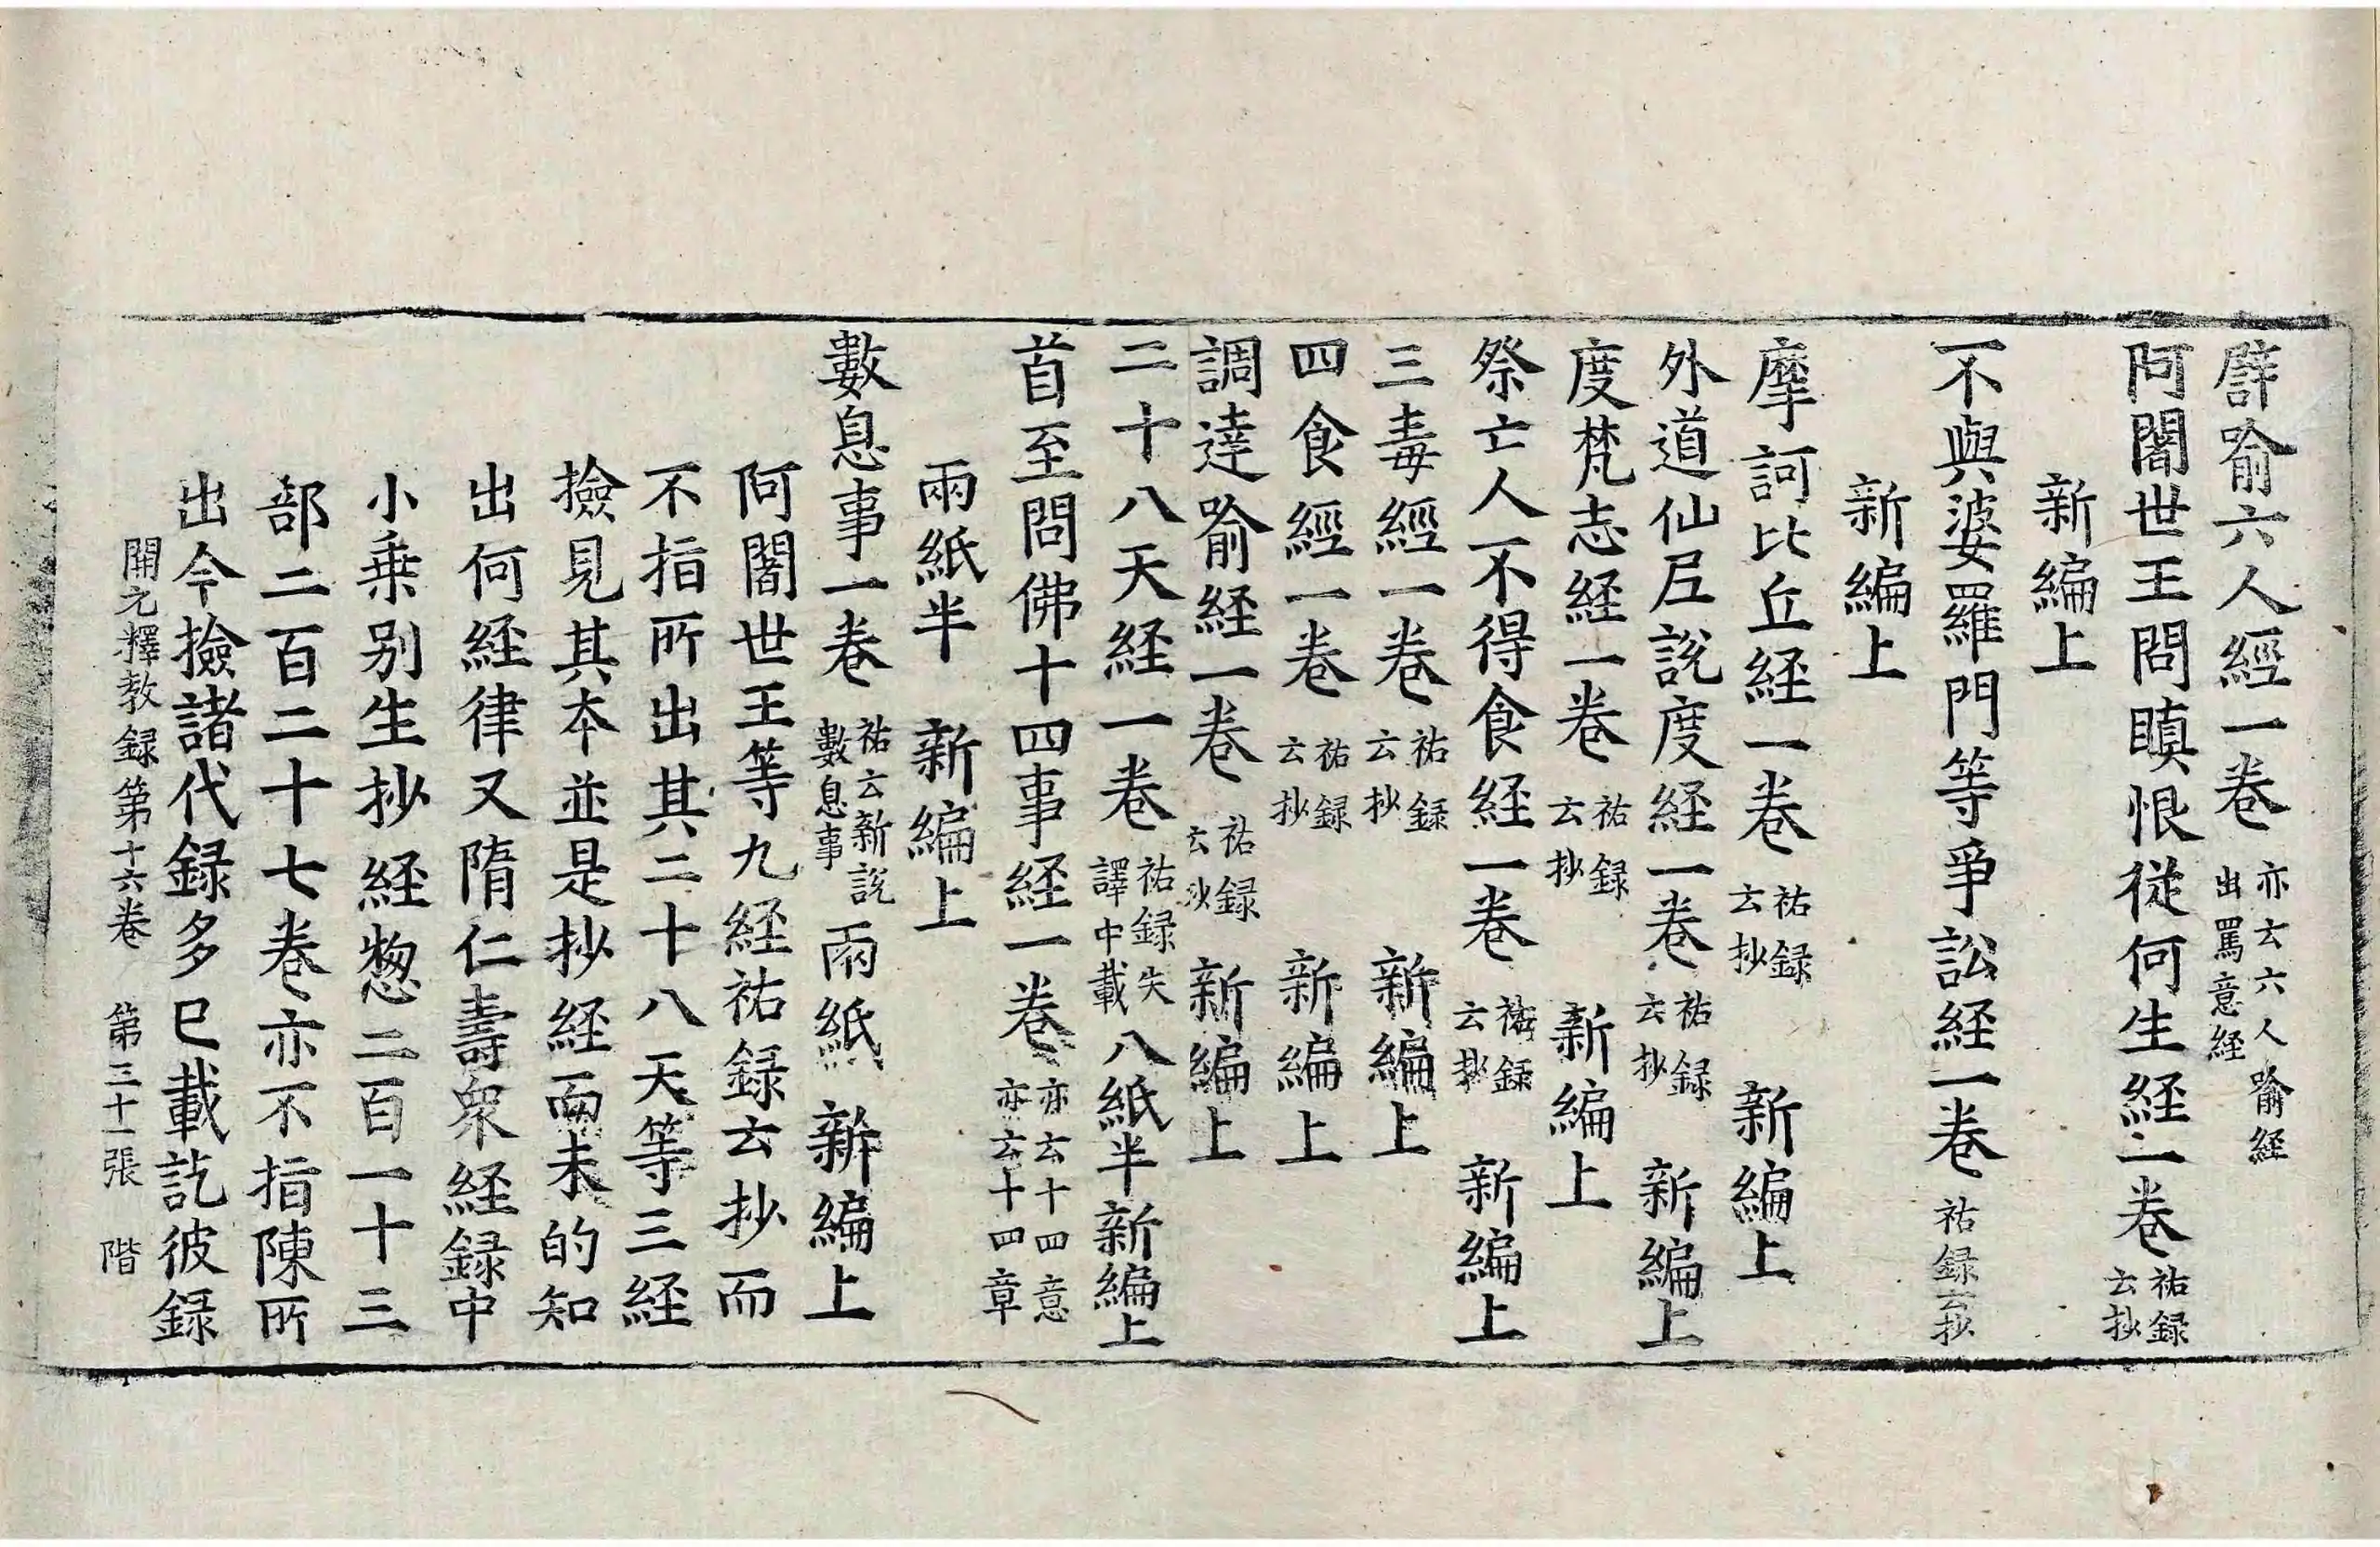 譬喻六人經一卷 亦云六人喻經 出罵意経
阿闍世王問瞋恨從何生経一卷 祐録云抄
新編上
不與婆羅門等爭訟経一卷 祐録云抄
新編上
摩訶比丘経一卷 祐録云抄 新編上
外道仙尼說度経一卷 祐録云抄 新編上
度梵志経一卷 祐録云抄 新編上
祭亡人不得食経一卷 祐録云抄 新編上
三毒經一卷 祐録云抄 新編上
四食經一卷 祐録云抄 新編上
調達喻経一卷 祐録云抄 新編上
二十八天経一卷 祐録失譯中載 八紙半 新編上
首至問佛十四事経一卷 亦云十四意 亦云十四章
兩紙半 新編上
數息事一卷 祐云新說數息事 兩紙 新編上
阿闍世王等九経祐録云抄而
不指所出其二十八天等三経
撿見其本並是抄経而未的知
出何経律又隋仁壽衆経録中
小乗别生抄経惣二百一十三
部二百二十七卷亦不指陳所
出今撿諸代録多已載訖彼録
開元釋教録第十六卷 第三十一張 階